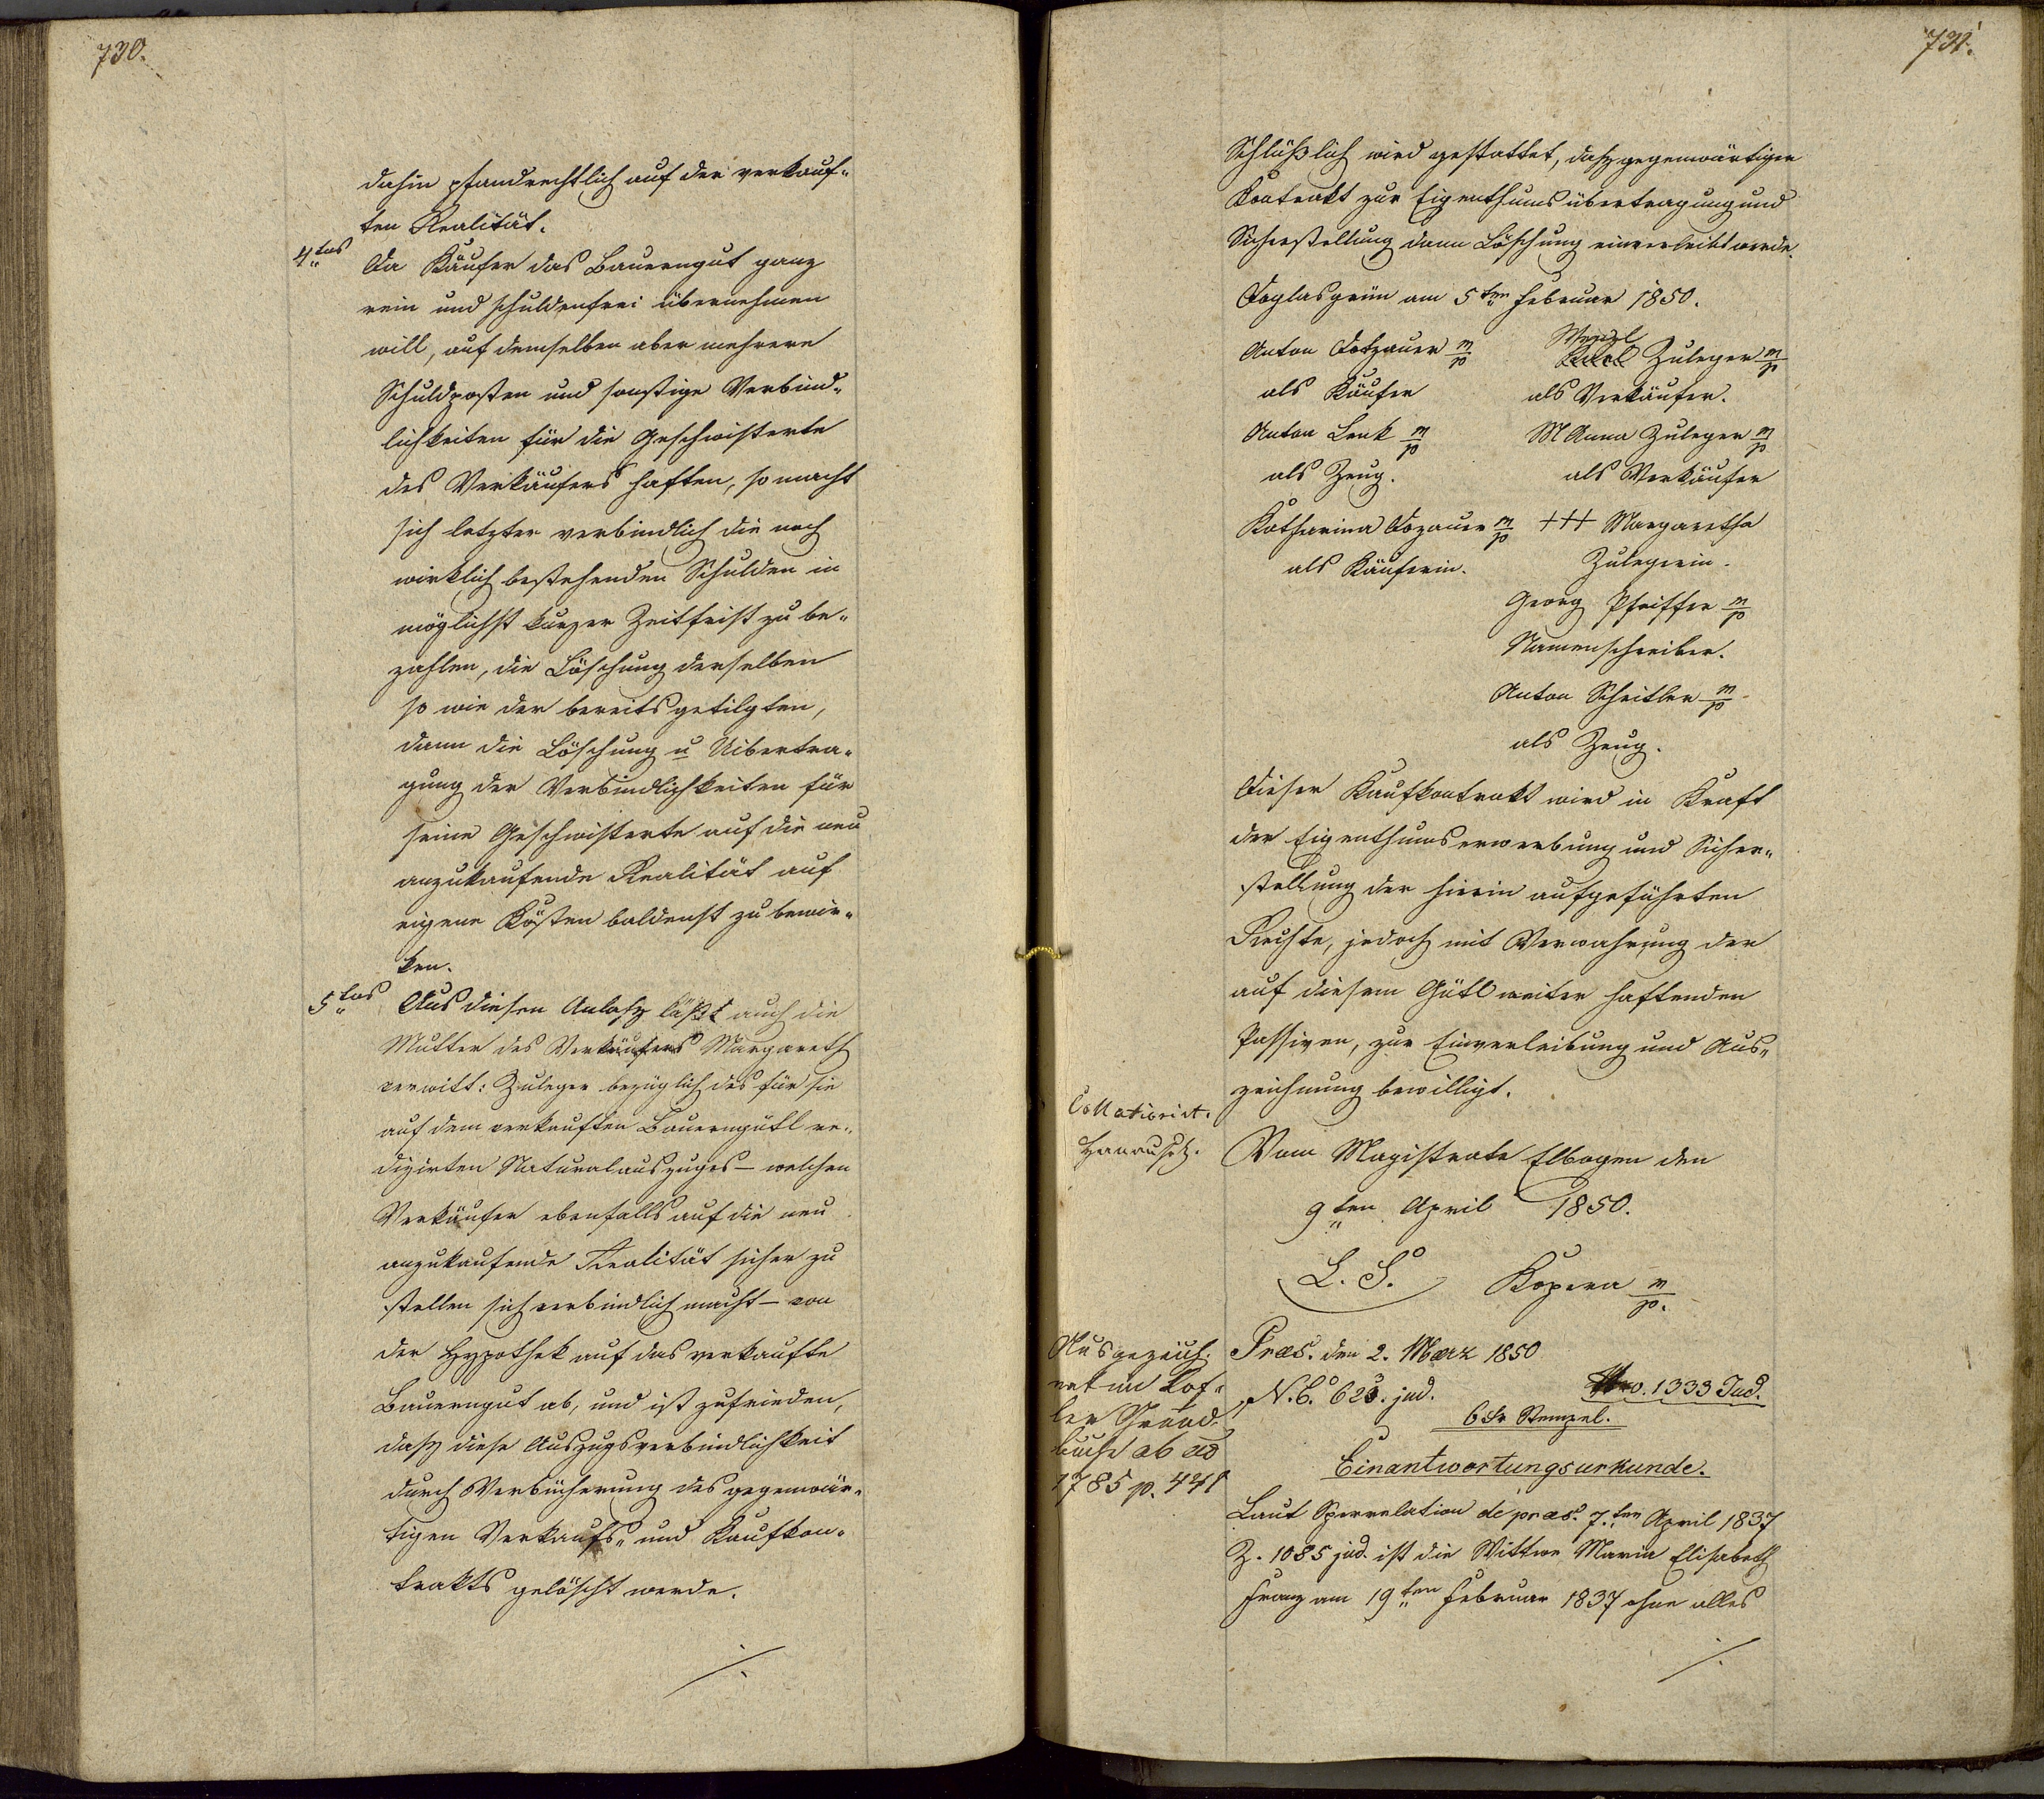 730.
dahin pfandrechtlich auf der verkauf-
ten Realität.
4tens
Da Käufer das Bauerngut ganz
rein und schuldenfrei übernehmen
will, auf demselben aber mehrere
Schuldposten und sonstige Verbind-
lichkeiten für die Geschwisterte
des Verkäufers haften, so macht
sich letzter verbindlich die noch
wirklich bestehenden Schulden in
möglichst kurzer Zeitfrist zu be-
zahlen, die Löschung derselben
so wie der bereits getilgten,
dann die Löschung u Uibertra-
gung der Verbindlichkeiten für
seine Geschwisterte auf die neu
anzukaufende Realität auf
eigene Kösten baldenst zu bewir-
ken.
5tens
Aus diesen Anlaß läßt auch die
Mutter des Verkäufers Margareth
verwitt: Zuleger bezüglich des für sie
auf dem verkauften Bauerngütl ve-
dizirten Naturalauszuges – welchen
Verkäufer ebenfalls auf die neu
anzukaufende Realität sicher zu
stellen sich verbindlich macht – von
der Hypothek auf das verkaufte
Bauerngut ab, und ist zufrieden,
daß diese Auszugsverbindlichkeit
durch Verbücherung des gegenwär-
tigen Verkaufs- und Kaufkon-
trakts gelöscht werde.
./.
731.
Schlüßlich wird gestattet, daß gegenwärtiger
Kontrakt zur Eigenthumsübertragung und
Sicherstellung dann Löschung einverleibt werde.
Doglasgrün am 5ten Februar 1850.
Anton Dotzauer m/p
Wenzl
Zuleger m/p
als Käufer
als Verkäufer.
Anton Lenk m/p
M Anna Zuleger m/p
als Zeug.
als Verkäufer
Katharina Dozauer m/p
+++ Margaretha
als Käuferin.
Zulegerin.
Georg Pfeiffer m/p
Namenschreiber.
Anton Scheitler m/p
als Zeug.
Dieser Kaufkontrakt wird in Kraft
der Eigenthumserwerbung und Sicher-
stellung der hierin aufgeführten
Rechte, jedoch mit Verwahrung der
auf diesem Gütl weiter haftenden
Passiven, zur Einverleibung und Aus-
zeichnung bewilligt.
Collationirt.
Vom Magistrate Elbogen den
9ten April 1850.
L. S.
Kopera m/p.
Ausgezeich-
net im Kof-
ler Grund-
buche ab ao
1785 p. 441
Præs. den 2. März 1850
N. E. 623. jud.
Nro. 1333 Jud.
6 Kr Stempel.
Einantwortungsurkunde.
Laut Sperrelation de præs. 7ten April 1837
Z. 1085 jud. ist die Wittwe Maria Elisabeth
Franz am 19ten Februar 1837 ohne alles
./.